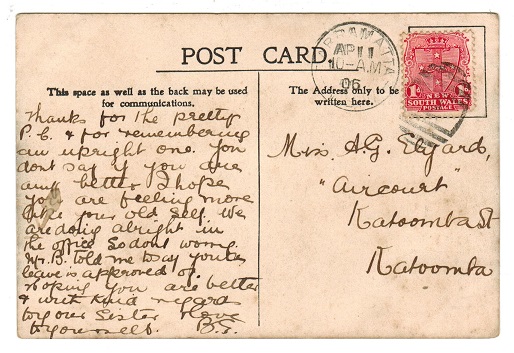 POST CARD.
PARRAMATTA
AP 11
10-A.M
06
1d 1d
NEW
SOUTH WALES
POSTAGE
This space as well as the back may be used
for communications.
The Address only to be
written here.
Thanks for the pretty
P.C. & for remembering
an upright one. You
dont say if you are
any better I hope
you are feeling more
like your old self. We
are doing alright in
the office so dont worry.
Mr. B. told me to say your
leave is approved of.
hoping you are better
& with kind regards
to your Sister & love
to yourself. B.S.
Miss A.G. Elyard,
"Aircourt"
Katoomba St
Katoomba